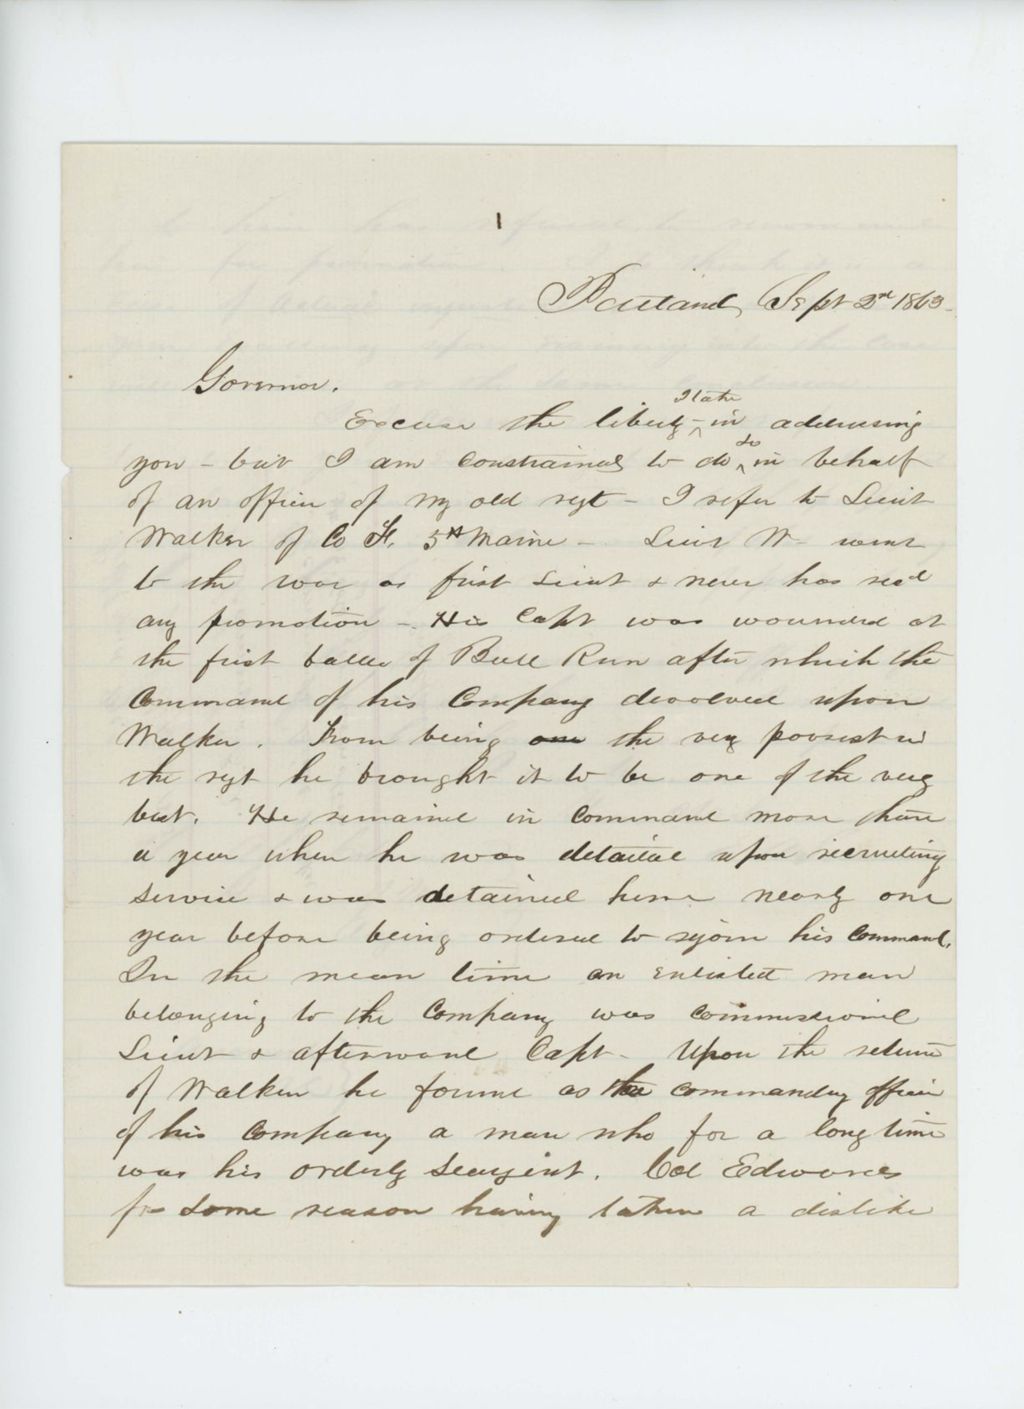 1
Portland, Sept 2nd 1863
Governor.
Excuse the liberty I take in addressing
you - but I am constrained to do so in behalf
of an officer of my old regt - I refer to Lieut
Walker of Co F. 5th Maine - Lieut W - went
to the war as first Lieut & never has recd
any promotion - His Capt was wounded at
the first battle of Bull Run after which the
Command of his Company devolved upon
Walker. From being one the very poorest in
the regt he brought it to be one of the very
best. He remained in Command more than
a year when he was detailed upon recruiting
service & was detained here nearly one
year before being ordered to rejoin his Command.
In the mean time an enlisted man
belonging to the Company was commissioned
Lieut & afterward Capt - Upon the return
of Walker he found as the commanding officer
of his Company a man who for a long time
was his orderly Seargent. Col Edwards
for some reason having taken a dislike